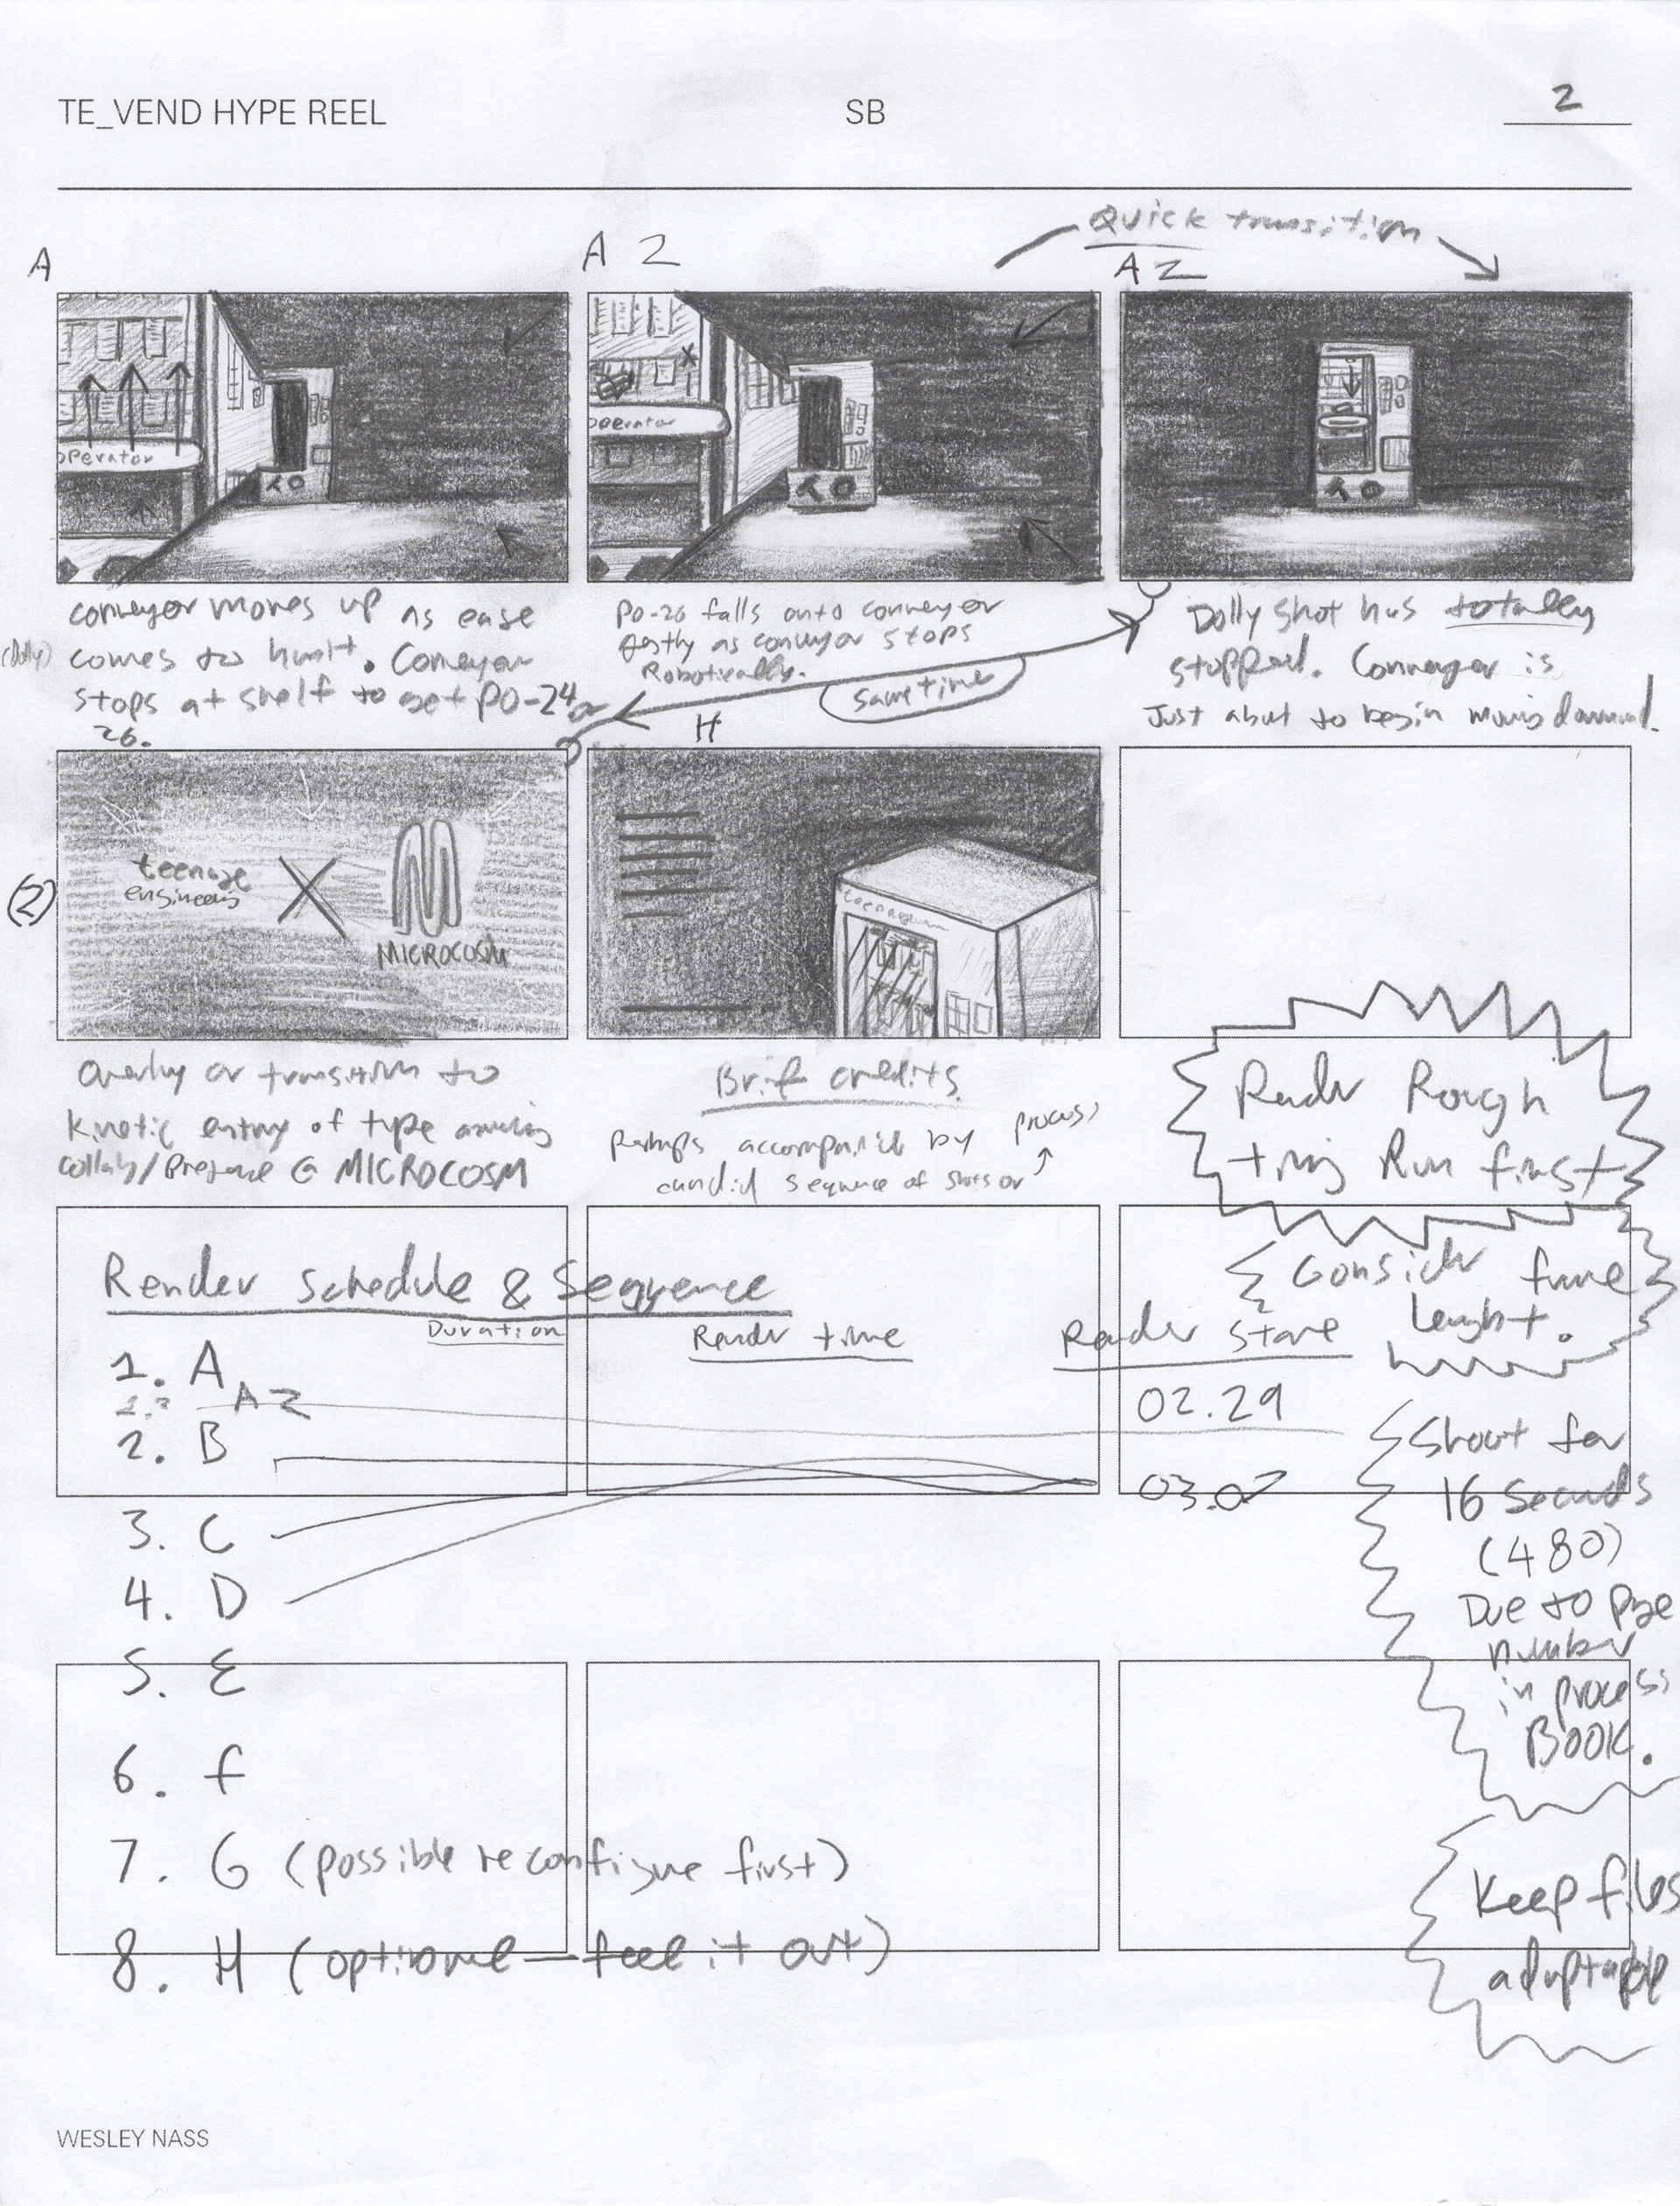 TE_VEND HYPE REEL
SB
2
Quick transition
A
A 2
A 2
operator
operator
conveyor moves up as ease
(Dolly) comes to hault. Conveyor
stops at shelf to get PO-24 or
26.
PO-26 falls onto conveyor
gently as conveyor stops
Robotically.
Same time
Dolly shot has totally
stopped. Conveyor is
Just about to begin moving downward.
H
(2)
teenage
engineering
X
MICROCOSM
teenage
Overlay or transition to
kinetic entry of type
collab/Presence @ MICROCOSM
Brief credits
Perhaps accompanied by process
candid sequence of shots or
Render Rough
timing Run first
Render Schedule & Sequence
Duration
Render time
Render Start
Consider frame
lenght.
1. A
A 2
02.29
2. B
03.07
3. C
4. D
5. E
6. F
7. G (possible reconfigure first)
8. H (optional — feel it out)
Shoot for
16 seconds
(480)
Due to page
number
in process
BOOK.
Keep files
adaptable
WESLEY NASS